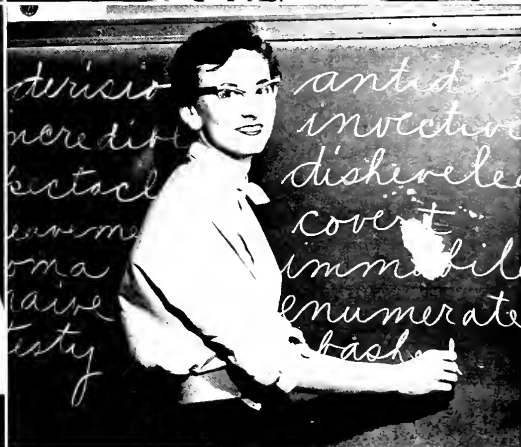 derisio
incredibl
pectacl
eaveme
oma
naive
testy
antidot
invective
dishevele
covert
immobil
enumerate
bashe